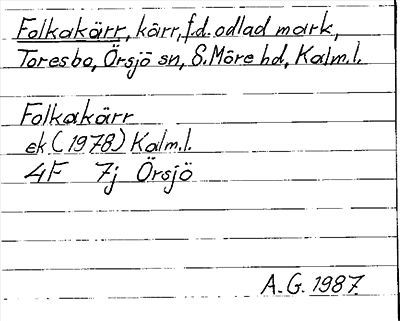 Folkakärr, kärr, f.d. odlad mark,
Toresbo, Örsjö sn, S. Möre hd, Kalm.l.
Folkakärr
ek (1978) Kalm.l.
4F 7j Örsjö
A.G. 1987